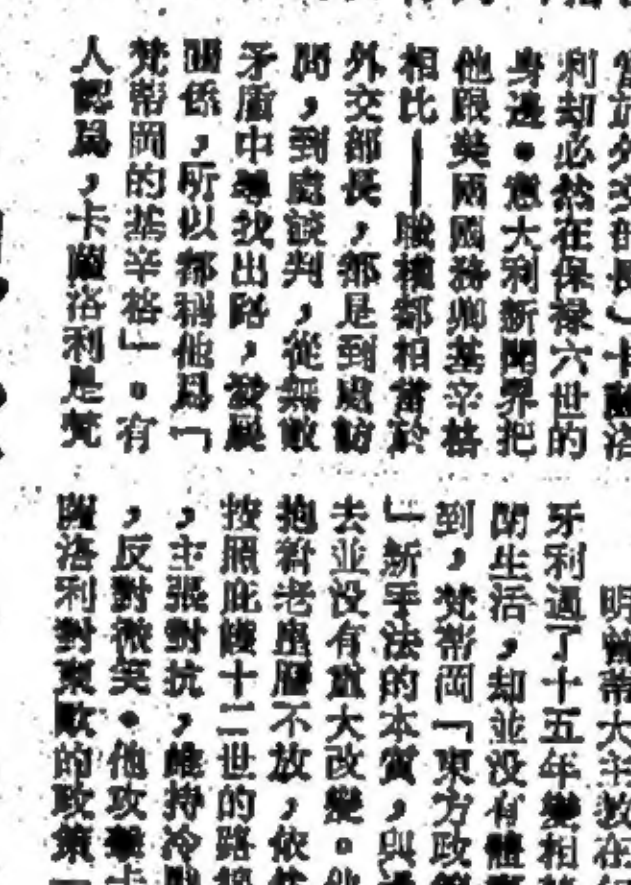 利却必然在保祿六世的
身邊。意大利新聞界把
他跟美國國務卿基辛格
相比——職權都相當於
外交部長，都是到處訪
問，到處談判，從無數
矛盾中尋找出路，發展
關係，所以都稱他爲「
梵蒂岡的基辛格」。有
人認爲，卡薩洛利是梵
明曾蒂大主教在
牙利過了十五年變相
閉生活，却並没有體
到，梵蒂岡「東方政
」新手法的本質，與
去並没有重大改變。他
抱着老皇曆不放，依
按照庇護十二世的路
，主張對抗，維持冷
，反對微笑。他攻擊卡
薩洛利對東歐的政策